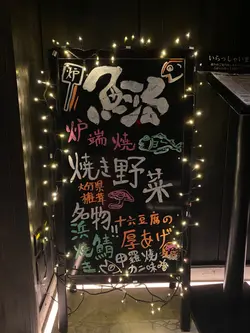 炉
炉端焼
焼き野菜
大分県
椎茸
名物!!
浜焼き鯖
十六豆腐の
厚あげ
甲羅焼
カニ味噌
いらっしゃいませ